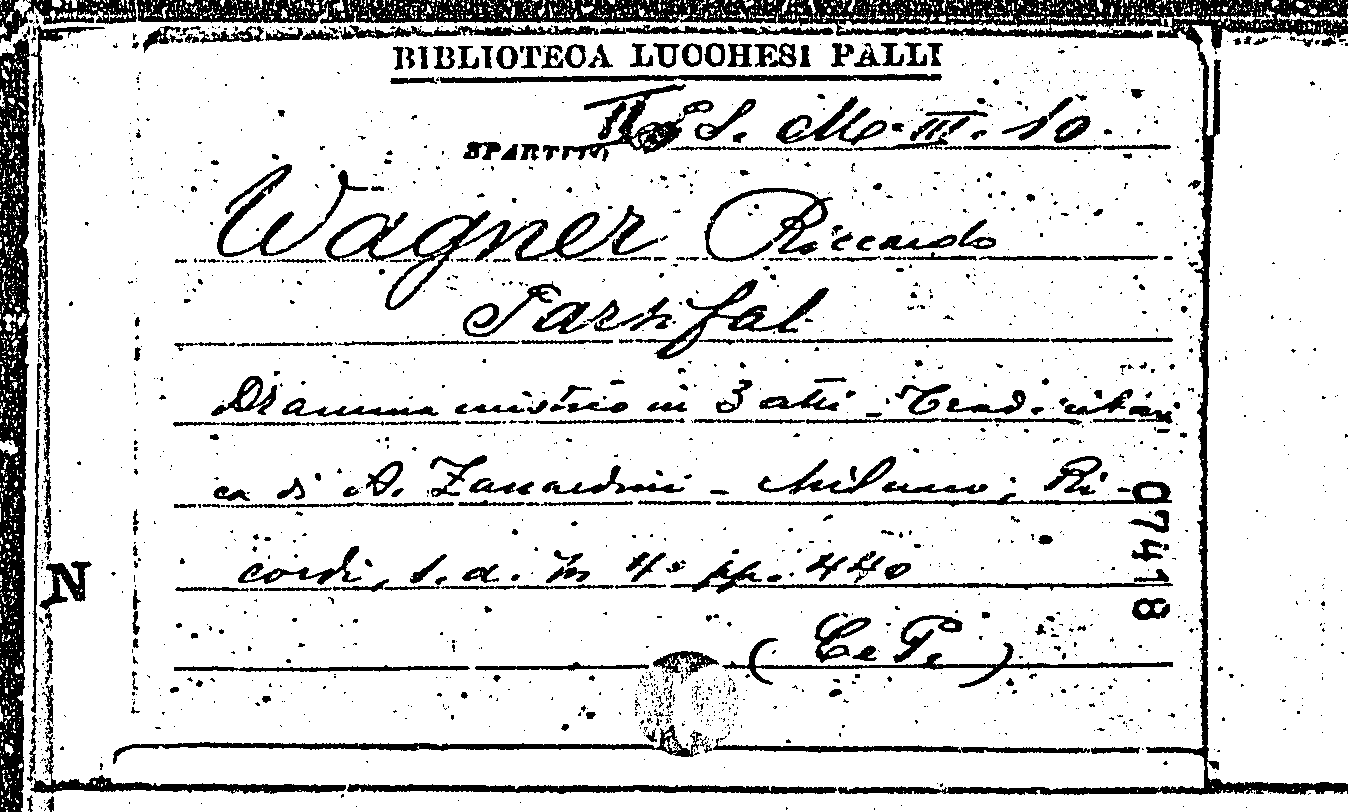 BIBLIOTECA LUCCHESI PALLI
II S. Mo. III. 10.
SPARTITO
Wagner Riccardo
Parsifal
Dramma mistico in 3 atti - Trad. ritmi
ca di A. Zanardini - Milano; Ri-
cordi, s. d. In 4° pp. 440
(Ce Pe)
07418
N